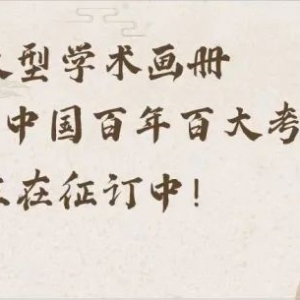 大型学术画册
中国百年百大考
正在征订中！